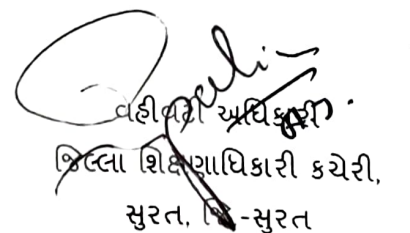 વહીવટી અધિકારી
જિલ્લા શિક્ષણાધિકારી કચેરી,
સુરત, જિ-સુરત